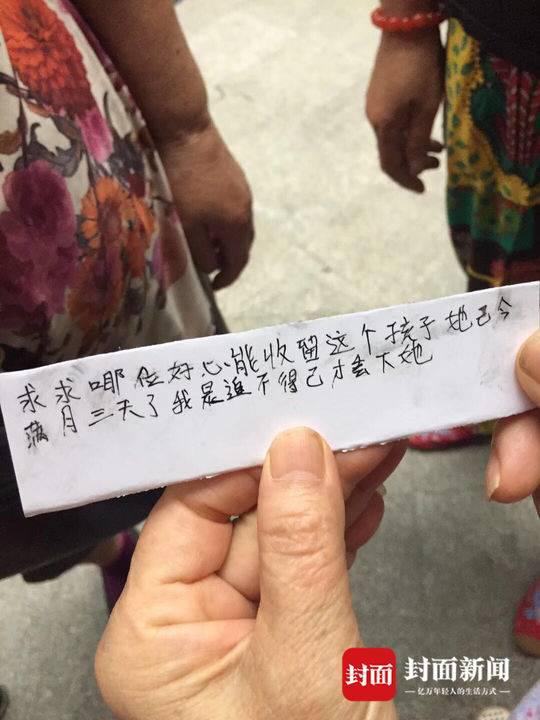 求求哪位好心能收留这个孩子她己今
满月三天了我是迫不得己才会大她
封面
封面新闻
亿万年轻人的生活方式